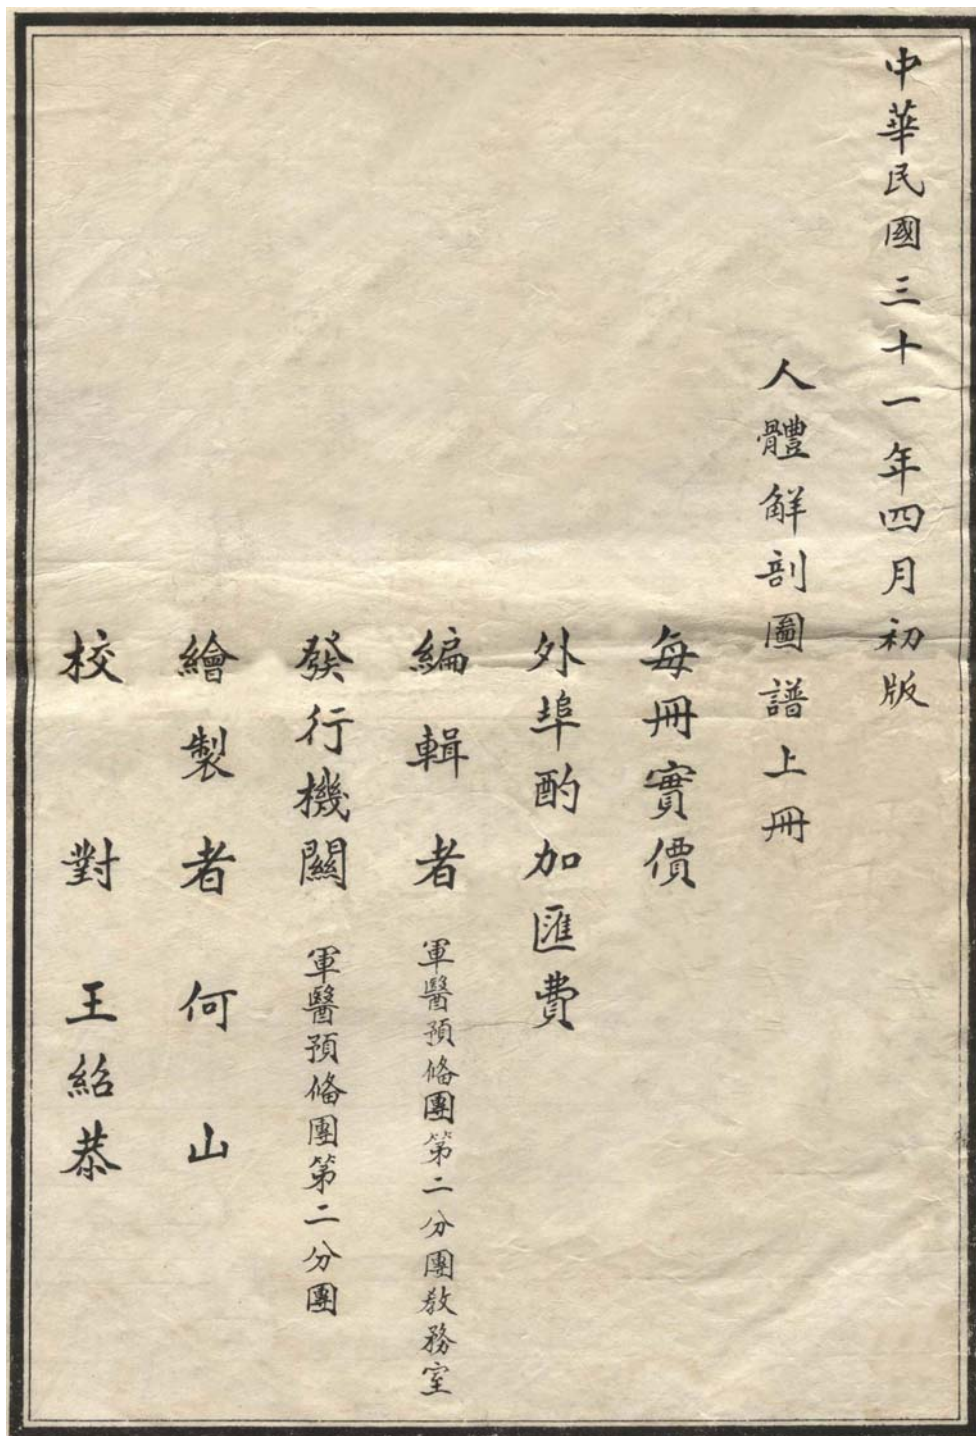 中華民國三十一年四月初版
人體解剖圖譜上冊
每冊實價
外埠酌加匯費
編輯者 軍醫預備團第二分團教務室
發行機關 軍醫預備團第二分團
繪製者 何山
校對 王紹恭